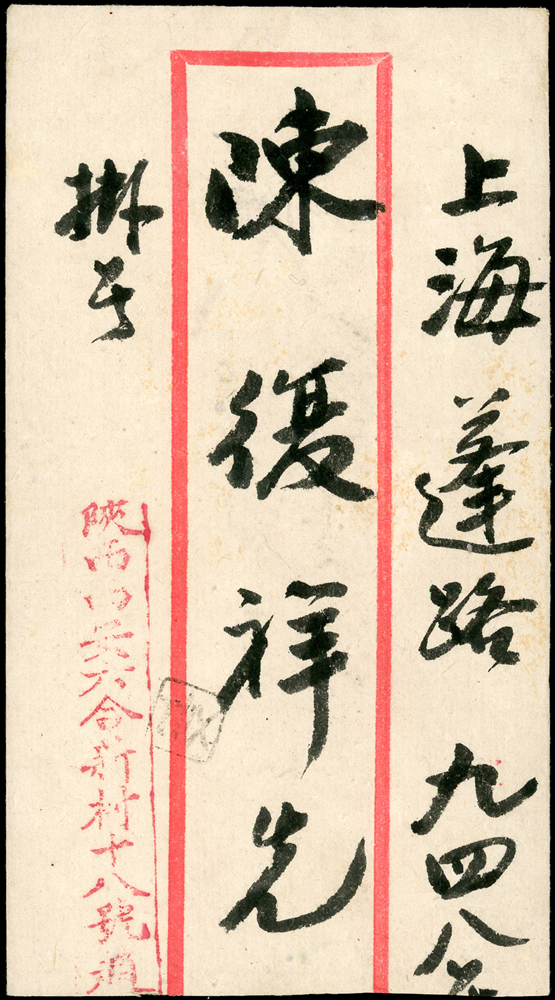 上海蓬路 九四八
陳復祥先
掛号
陝西西安六合新村十八號